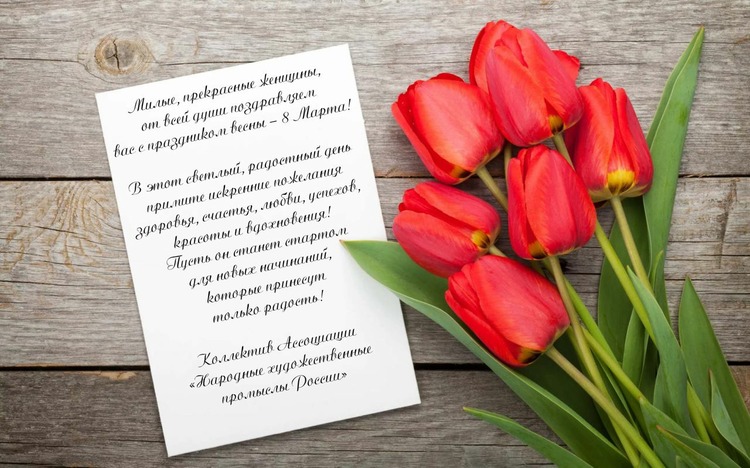 Милые, прекрасные женщины,
от всей души поздравляем
вас с праздником весны – 8 Марта!
В этот светлый, радостный день
примите искренние пожелания
здоровья, счастья, любви, успехов,
красоты и вдохновения!
Пусть он станет стартом
для новых начинаний,
которые принесут
только радость!
Коллектив Ассоциации
«Народные художественные
промыслы России»